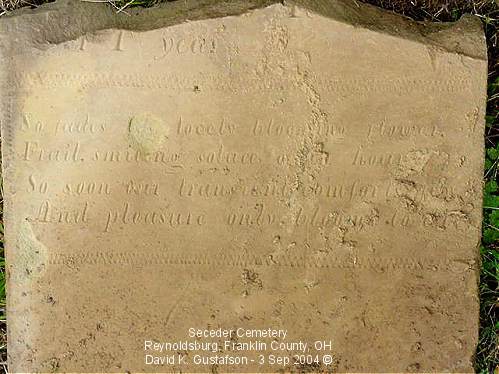 1 year
So fades the lovely blooming flower,
Frail, smiling solace of an hour
So soon our transient comforts fly
And pleasure only blooms to die
Seceder Cemetery
Reynoldsburg, Franklin County, OH
David K. Gustafson - 3 Sep 2004 ©